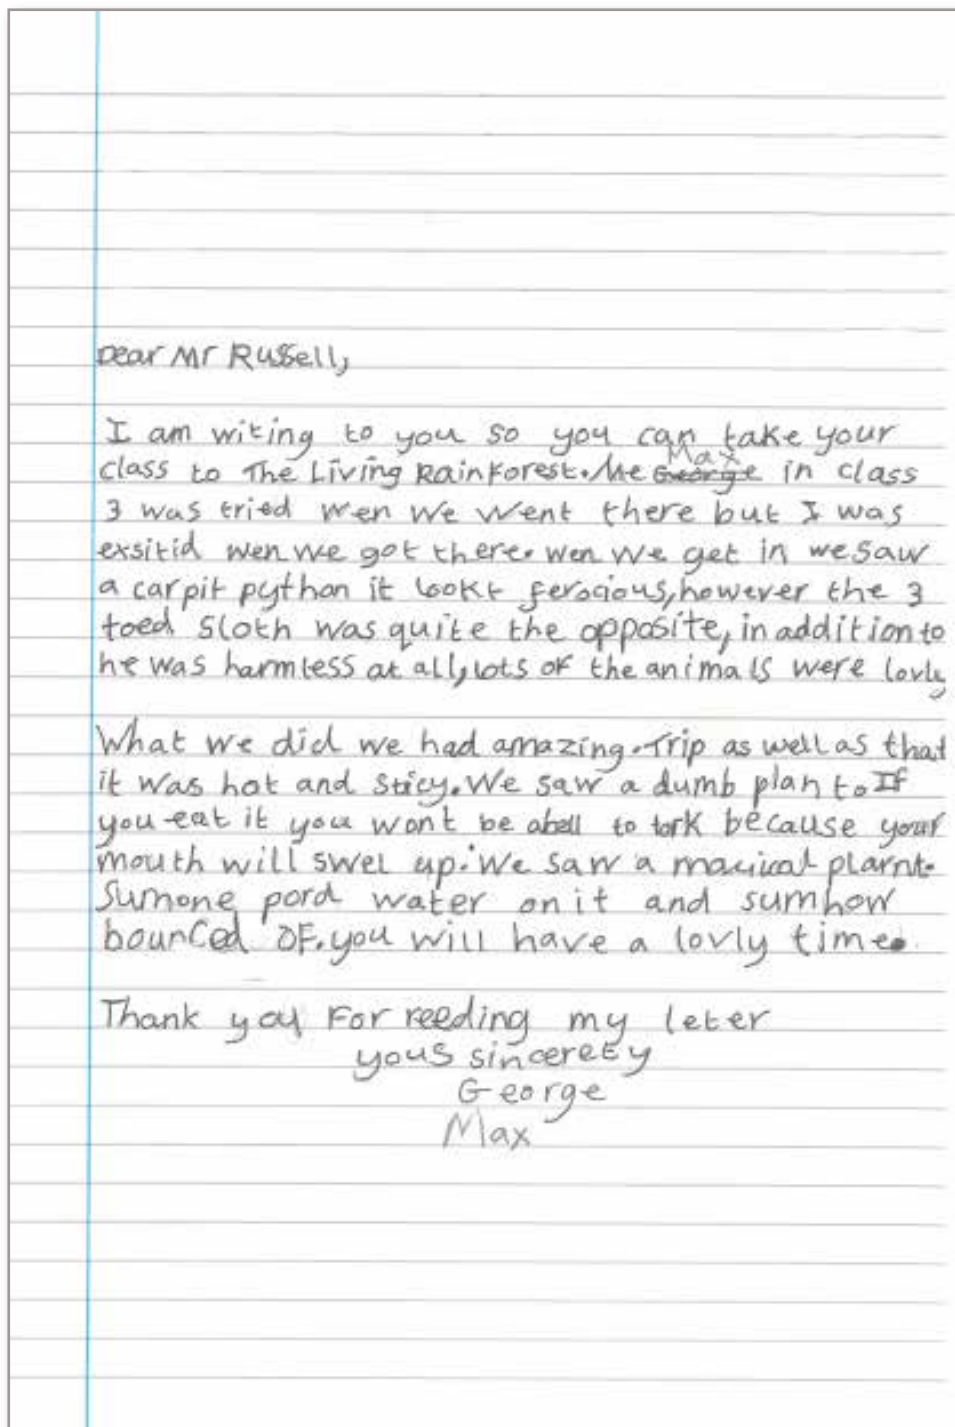 Dear Mr Russell,
I am witing to you so you can take your
Max
class to The Living Rainforest. Me George in class
3 was tried wen we went there but I was
exsitid wen we got there. wen we get in we saw
a carpit python it lookt ferocious, however the 3
toed sloth was quite the opposite, in addition to
he was harmless at all, lots of the animals were lovly
What we did we had amazing. Trip as well as that
it was hot and sticy. We saw a dumb plant. If
you eat it you wont be abell to tork because your
mouth will swel up. We saw a magical plarnt.
Sumone pord water on it and sumhow
bounced of. you will have a lovly time.
Thank you For reeding my leter
yous sincerety
George
Max